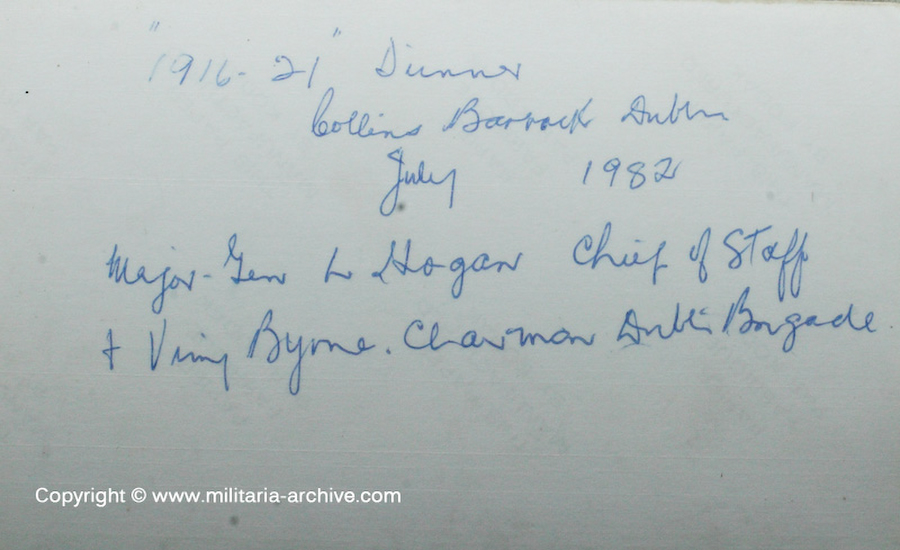 "1916-21" Dinner
Collins Barrack Dublin
July 1982
Major-Gen L Hogan Chief of Staff
+ Viny Byrne. Chairman Dublin Brigade.
Copyright © www.militaria-archive.com